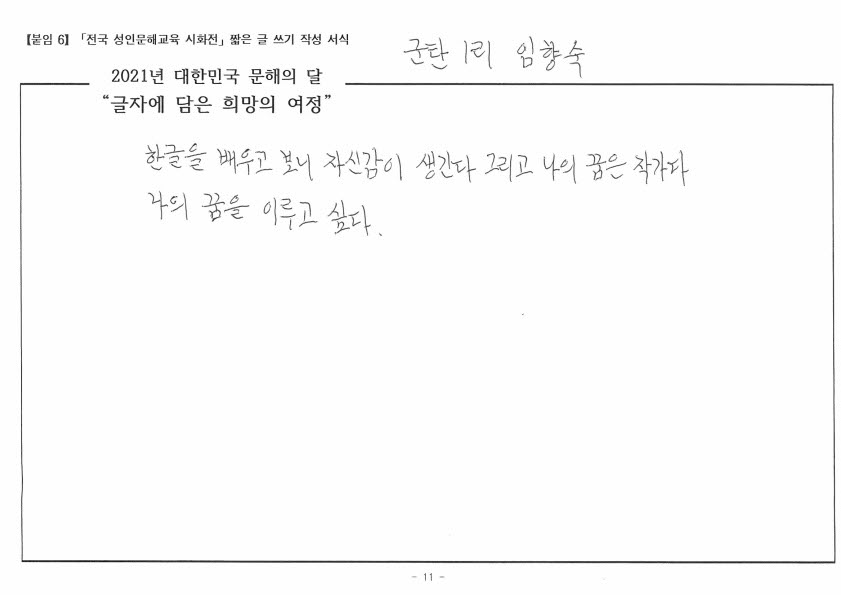 【붙임 6】 「전국 성인문해교육 시화전」 짧은 글 쓰기 작성 서식
군탄 1리 임향숙
2021년 대한민국 문해의 달
“글자에 담은 희망의 여정”
한글을 배우고 보니 자신감이 생긴다 그리고 나의 꿈은 작가다
나의 꿈을 이루고 싶다.
- 11 -